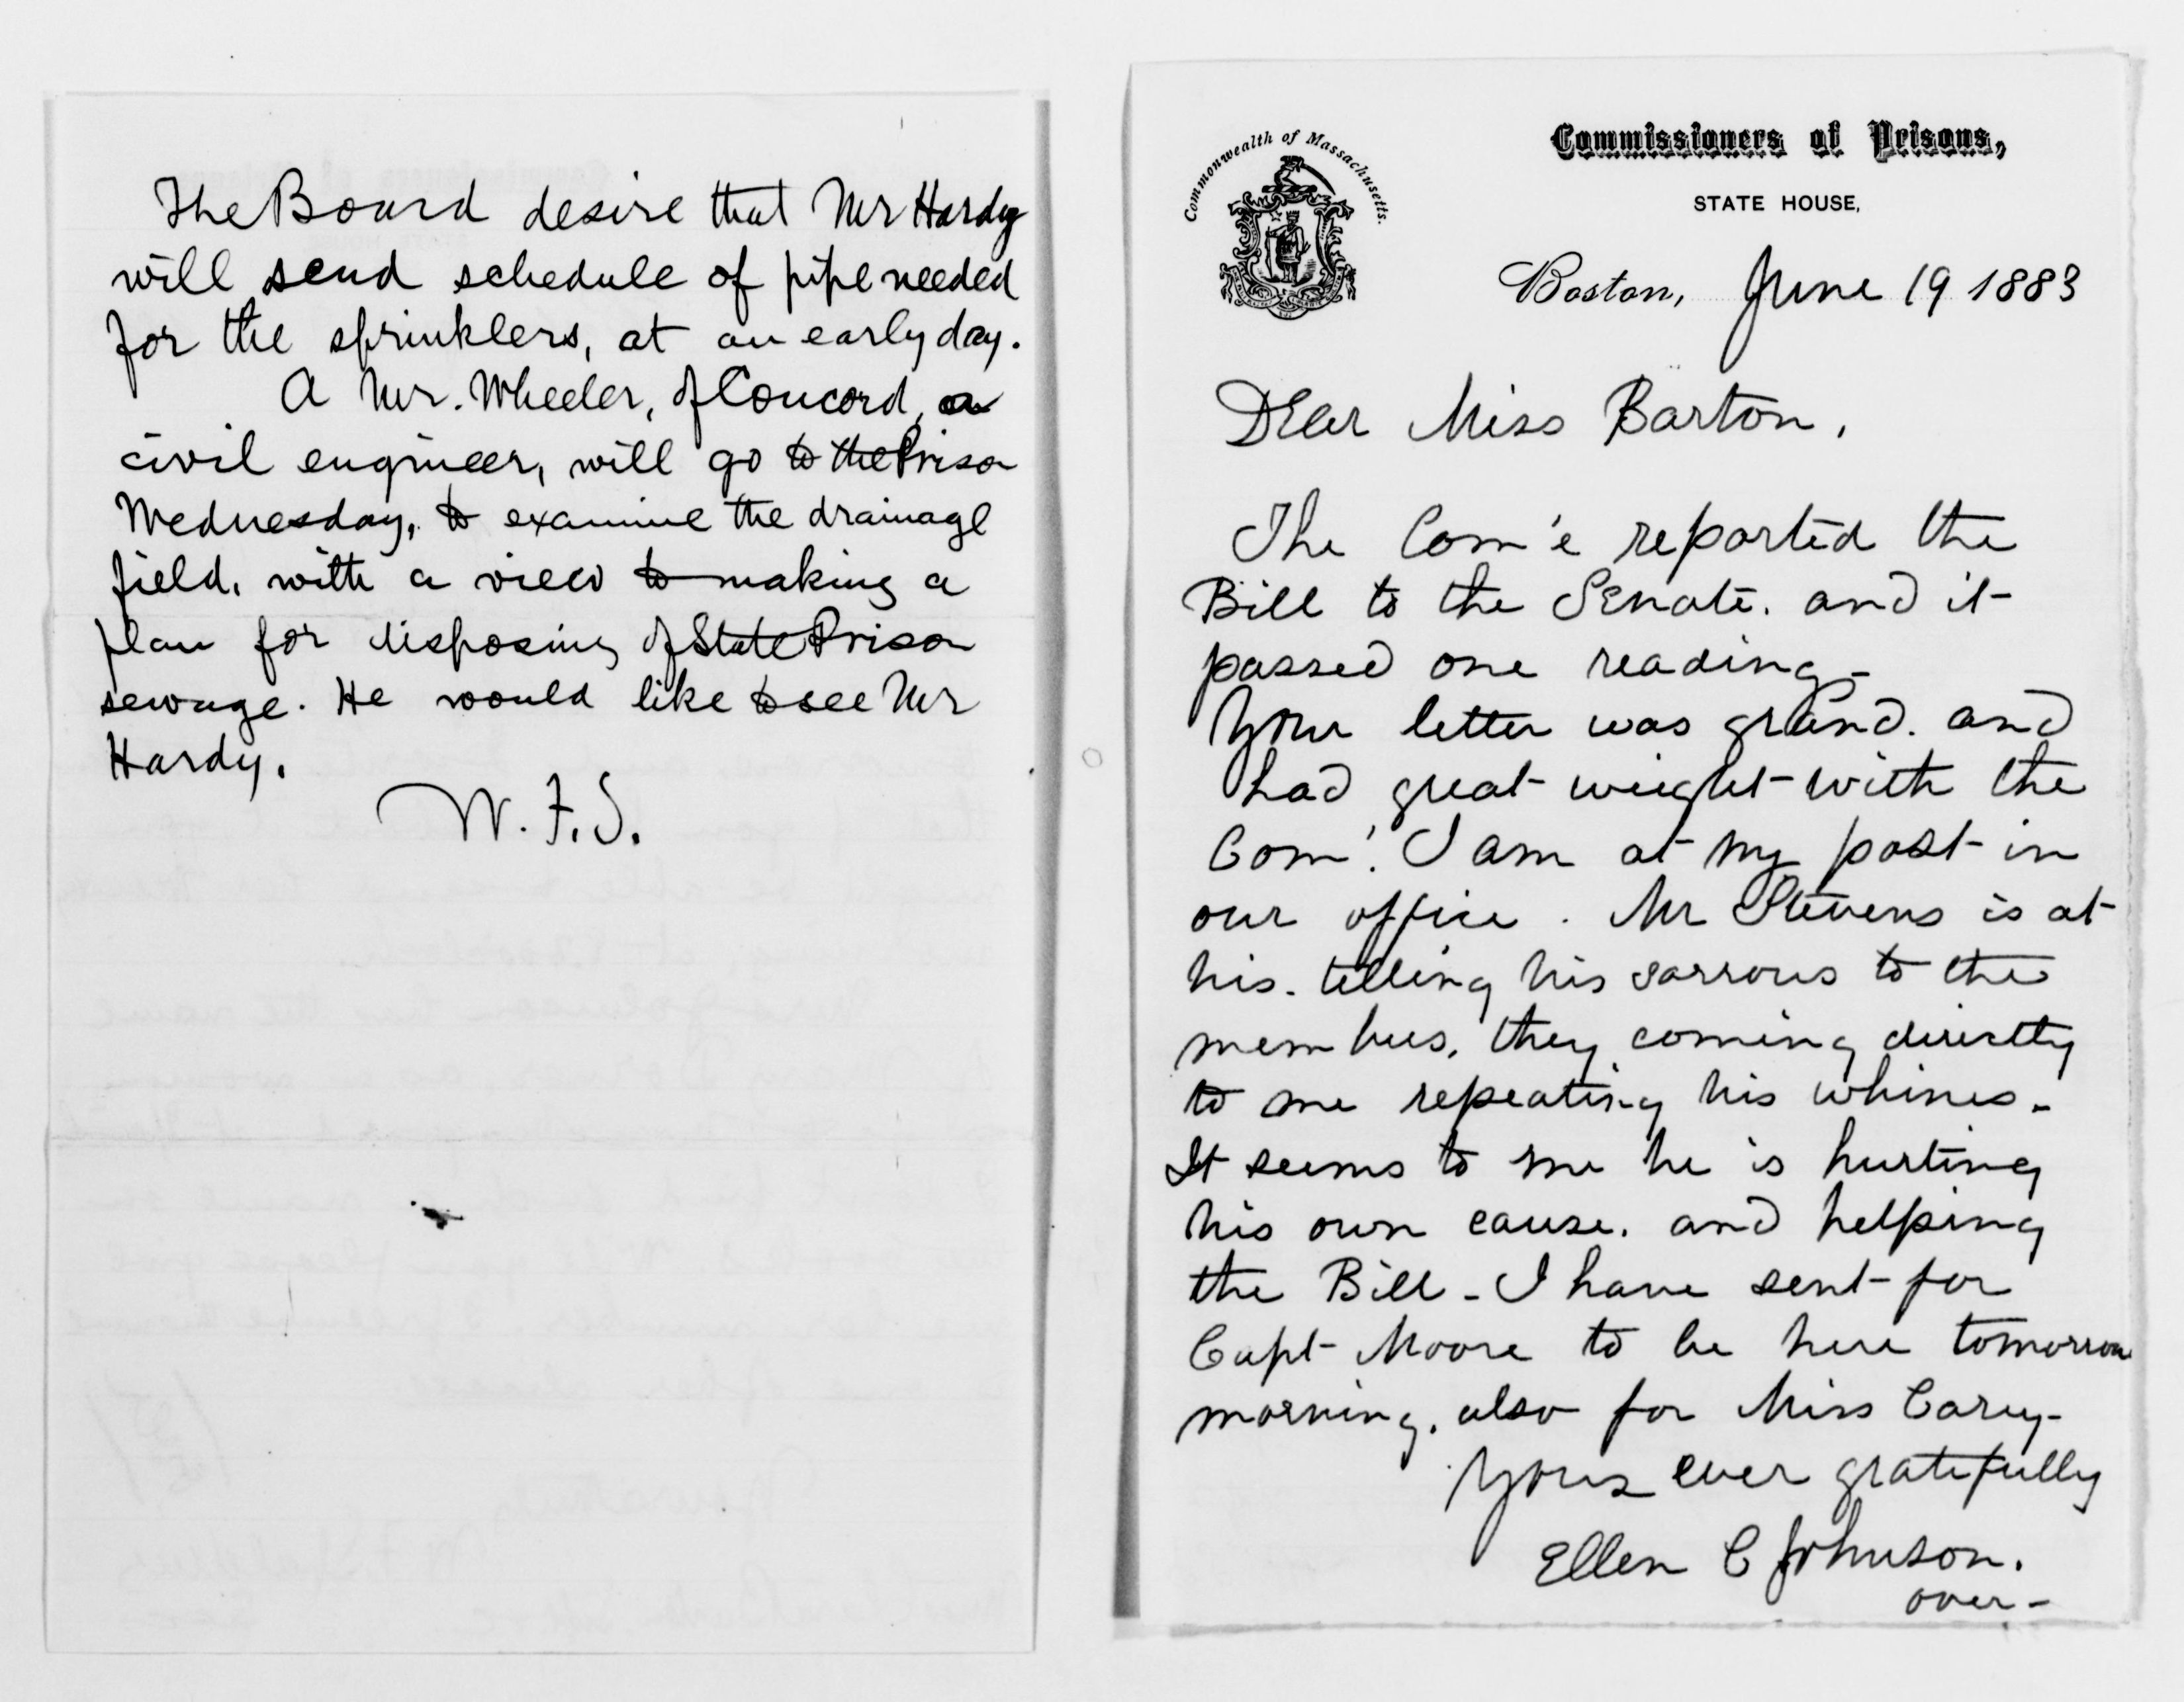 The Board desire that Mr Hardy
will send schedule of pipe needed
for the sprinklers, at an early day.
A Mr. Wheeler, of Concord, a
civil engineer, will go to the Prison
Wednesday, to examine the drainage
field, with a view to making a
plan for disposing of State Prison
sewage. He would like to see Mr
Hardy.
W. F. S.
Commonwealth of Massachusetts.
Commissioners of Prisons,
STATE HOUSE,
Boston, June 19 1883
Dear Miss Barton,
The Com'e reported the
Bill to the Senate. and it
passed one reading-
Your letter was grand. and
had great weight with the
Com'. I am at my post in
our office. Mr Stevens is at
his. telling his sorrows to the
members, they coming directly
to me repeating his whines-
It seems to me he is hurting
his own cause. and helping
the Bill - I have sent for
Capt Moore to be here tomorrow
morning. also for Miss Carey-
Yours ever gratefully
Ellen C Johnson.
over-